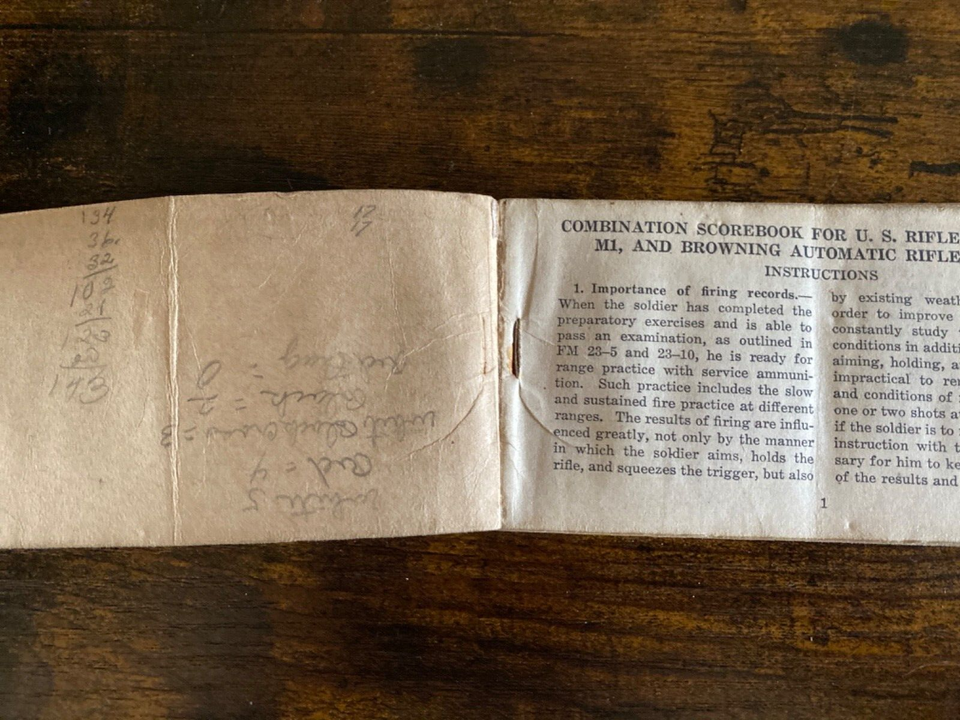 134
36
32
102
21
143
white 5
Red = 4
Black = 2
0
COMBINATION SCOREBOOK FOR U. S. RIFLE
M1, AND BROWNING AUTOMATIC RIFLE
INSTRUCTIONS
1. Importance of firing records.—
When the soldier has completed the
preparatory exercises and is able to
pass an examination, as outlined in
FM 23–5 and 23–10, he is ready for
range practice with service ammuni-
tion. Such practice includes the slow
and sustained fire practice at different
ranges. The results of firing are influ-
enced greatly, not only by the manner
in which the soldier aims, holds the
rifle, and squeezes the trigger, but also
by existing weath
order to improve
constantly study
conditions in additi
aiming, holding, a
impractical to re
and conditions of
one or two shots a
if the soldier is to
instruction with t
sary for him to ke
of the results and
1